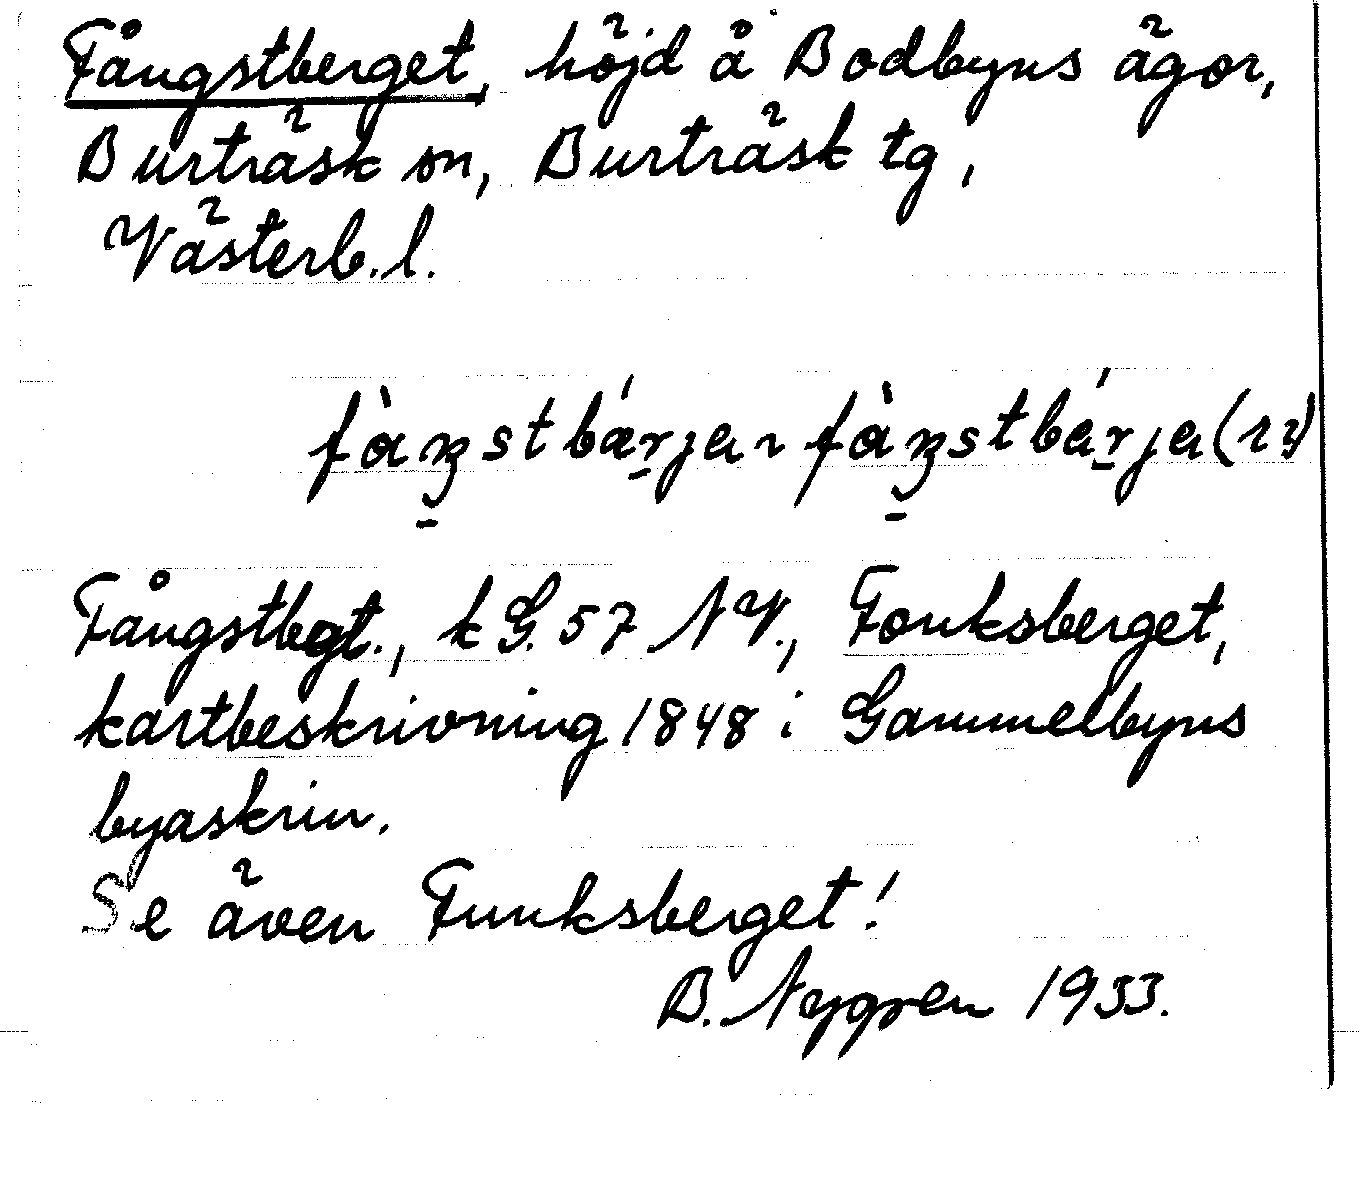 Fångstberget, höjd å Bodbyns ägor,
Burträsk sn, Burträsk tg,
Västerb. l.
Fångstbgt., k G. 57 NV., Fonksberget,
kartbeskrivning 1848 i Gammelbyns
byaskrin.
Se även Funksberget!
B. Nygren 1933.